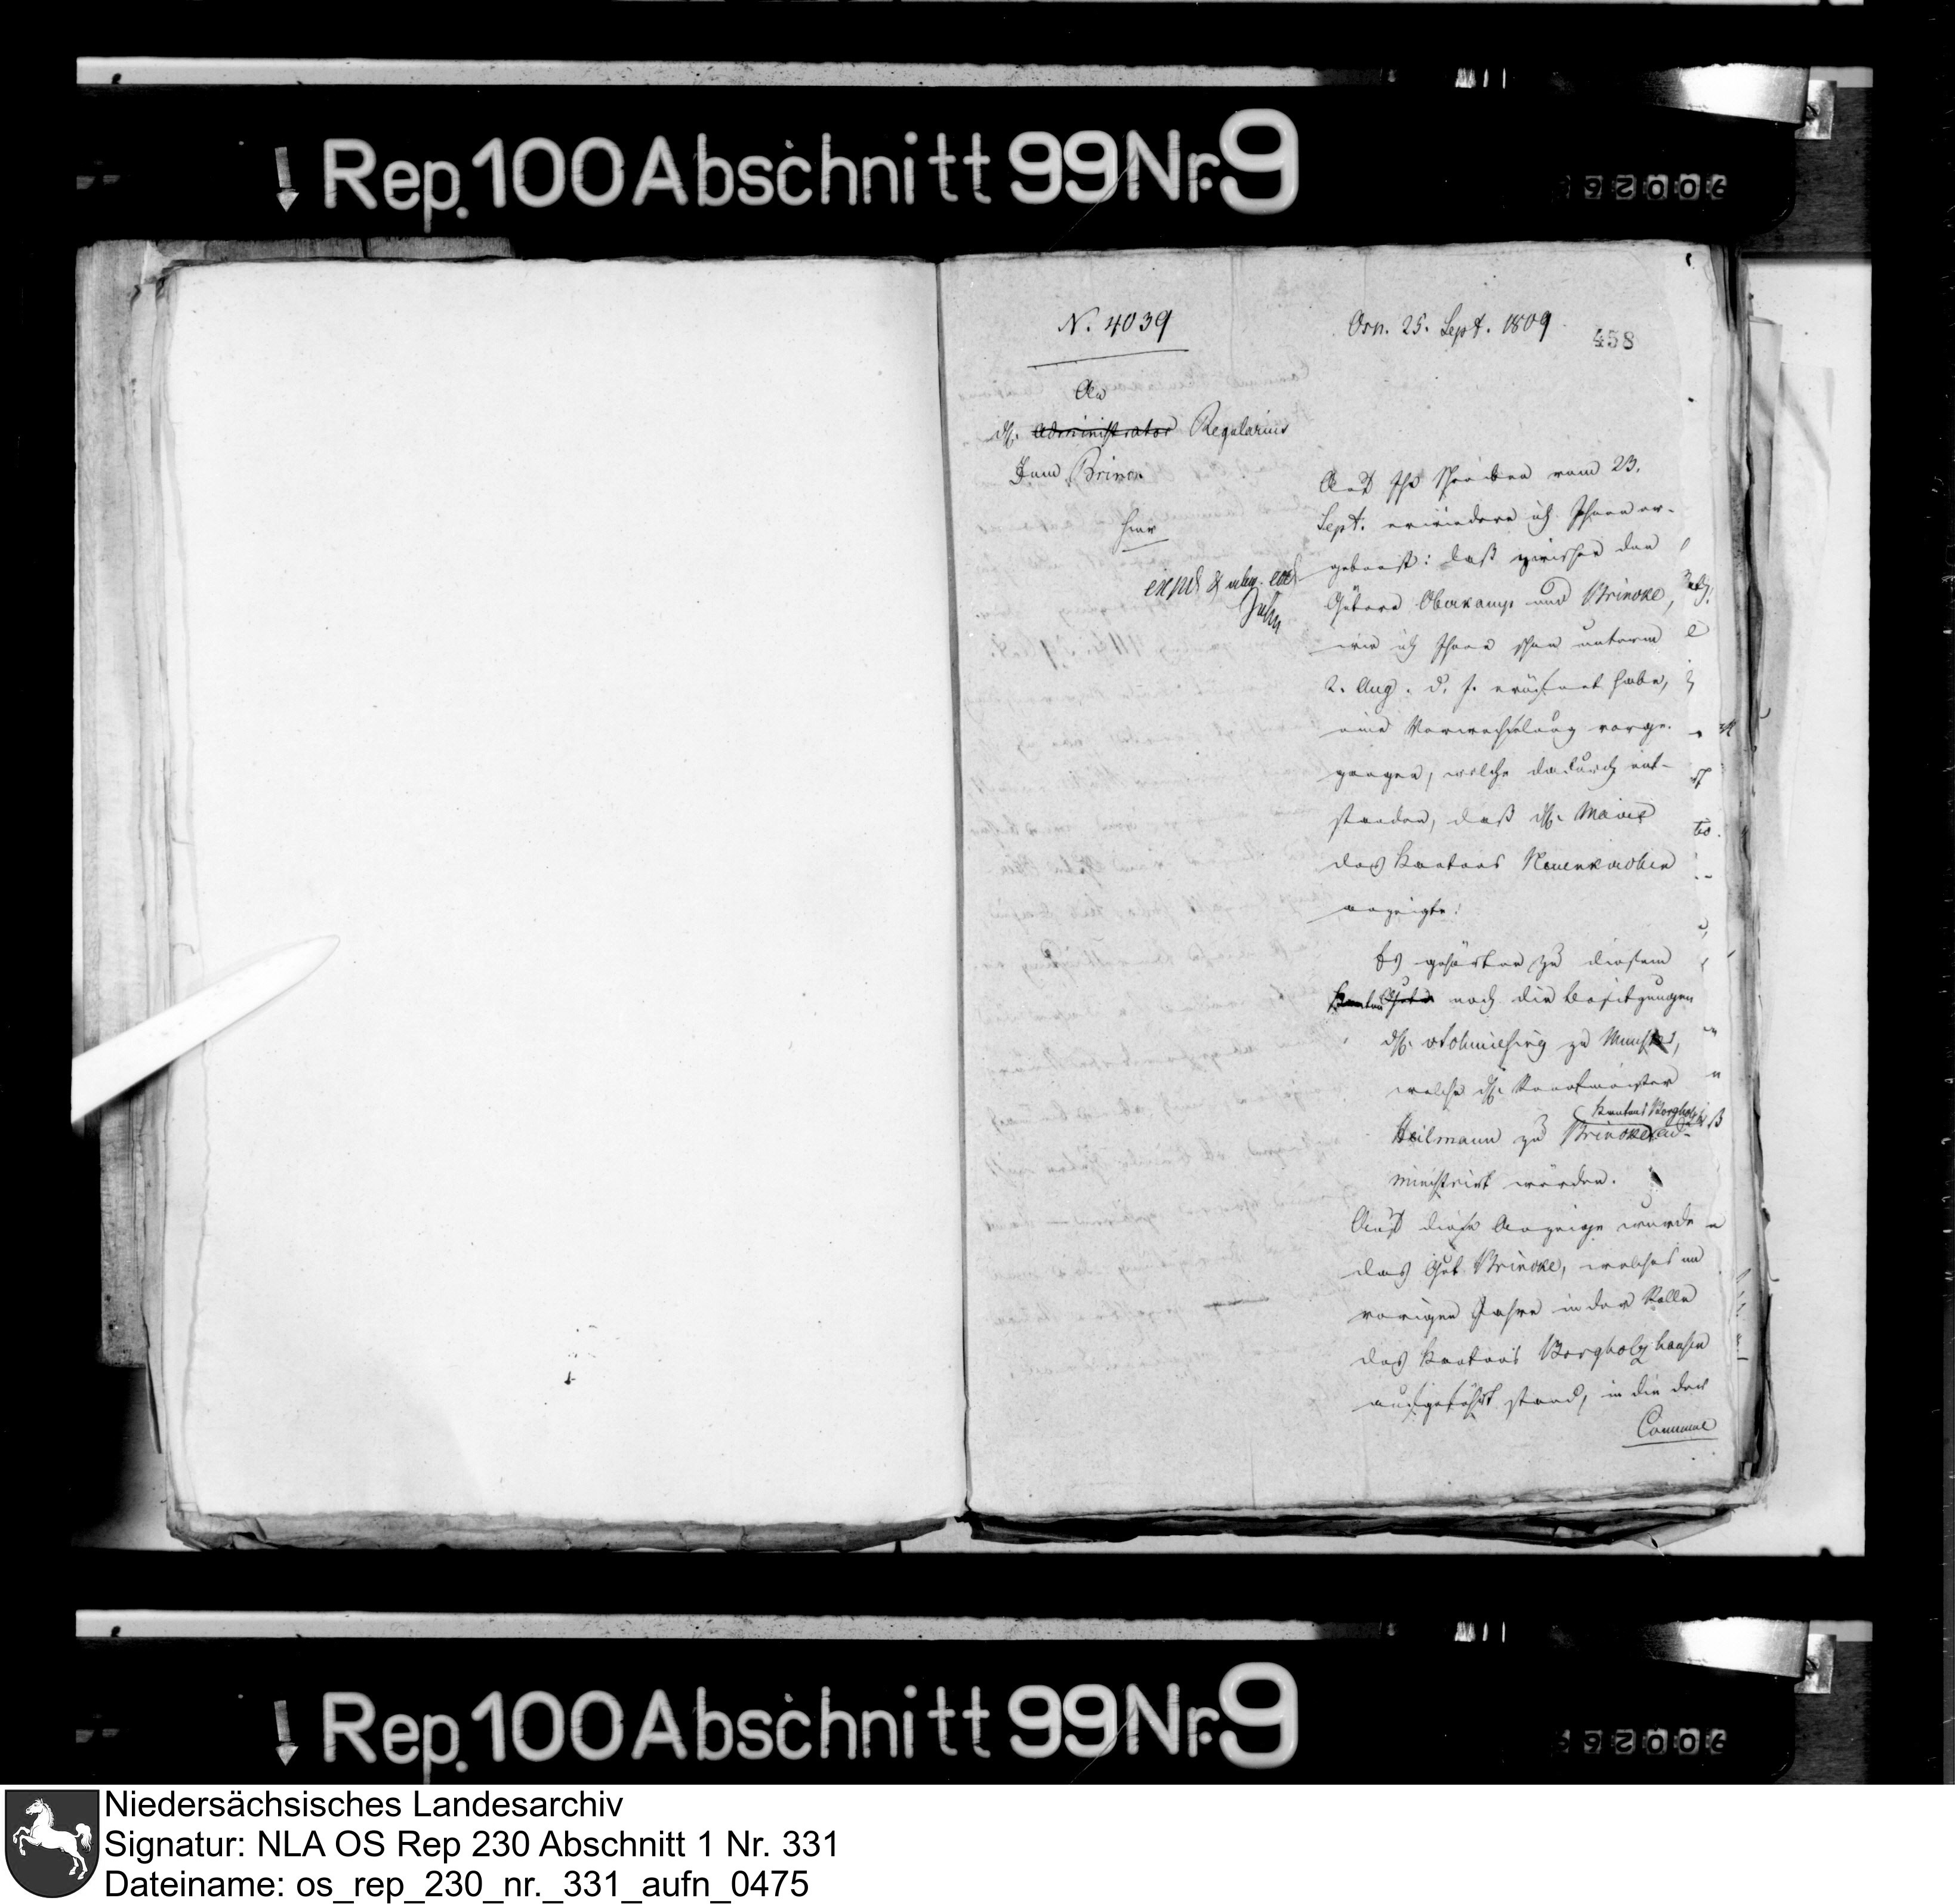 Rep. 100 Abschnitt 99 Nr. 9
N. 4039
Osn. 25. Sept. 1809
458
An
H. Administrator Regularius
Zum Brinck
hier
Auf Ihr Schreiben vom 23.
Sept. erwiedere ich Ihnen er-
gebenst: daß zwischen den
Gütern Oberkamp und Brincke,
wie ich Ihnen schon unterm
2. Aug. d. J. eröfnet habe,
eine Verwechselung vorge-
gangen, welche dadurch ent-
standen, daß H. Maire
des Kantons Neuenkirchen
anzeigte:
Es gehörten zu diesem
Kanton Gute noch die Besitzungen
H. zu Munster,
welche H. Rentmeister
Kantons Borgholzh
Heilmann zu Brincke ad-
ministrirt würden.
Auf diese Anzeige wurde
das Gut Brincke, welches im
vorigen Jahre in der Rolle
des Kantons Borgholzhausen
aufgeführt stand, in die der
Commune
Rep. 100 Abschnitt 99 Nr. 9
Niedersächsisches Landesarchiv
Signatur: NLA OS Rep 230 Abschnitt 1 Nr. 331
Dateiname: os_rep_230_nr._331_aufn_0475